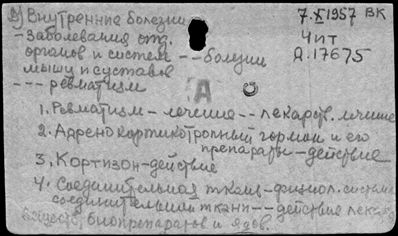 В) Внутренние болезни 7.X1957 ВК
- заболевания отд. Чит
органов и систем -- болезни Д.17675
мышц и суставов
--- ревматизм
А
1. Ревматизм - лечение -- лекарств. лечение
2. Адренокортикотропный гормон и его
препараты -- действие
3. Кортизон - действие
4. Соединительная ткань - физиол. система
соединительной ткани -- действие лекарств.
веществ, биопрепаратов и ядов.